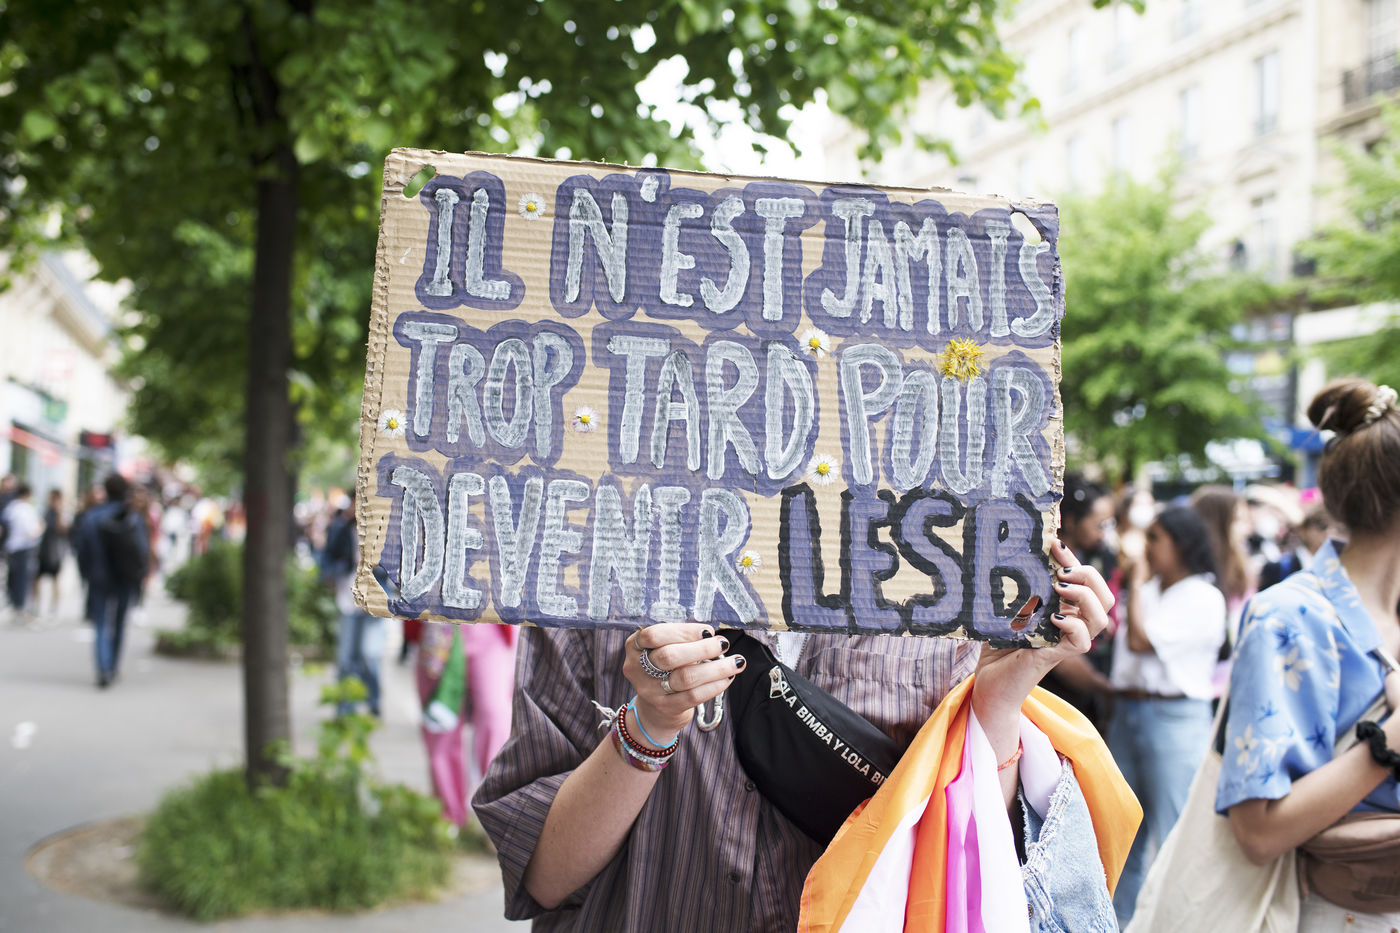 IL N'EST JAMAIS
TROP TARD POUR
DEVENIR LESB
OLA BIMBA Y LOLA BI